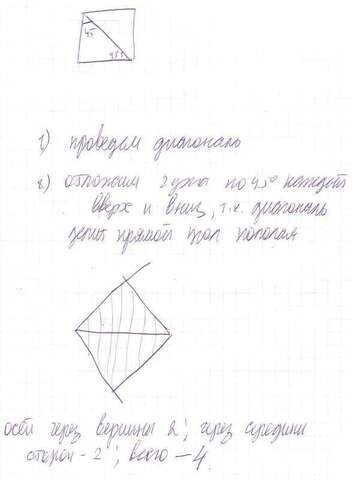 45
45°
1) проведем диагональ
2) отложим 2 угла по 45° каждый
вверх и вниз, т.к. диагональ
делит прямой угол пополам
осей через вершины 2; через середины
сторон - 2; всего - 4